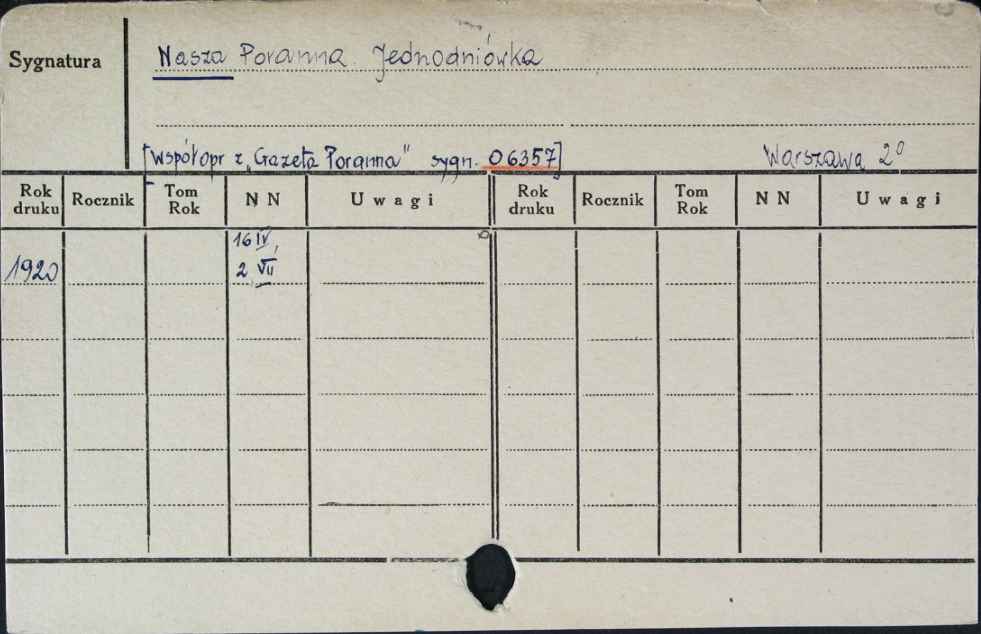 Sygnatura
Nasza Poranna Jednodniówka
[współopr z „Gazeta Poranna" sygn. 06357]
Warszawa 2⁰
Rok druku Rocznik Tom Rok N N Uwagi Rok druku Rocznik Tom Rok N N Uwagi
16 IV,
1920 2 VII